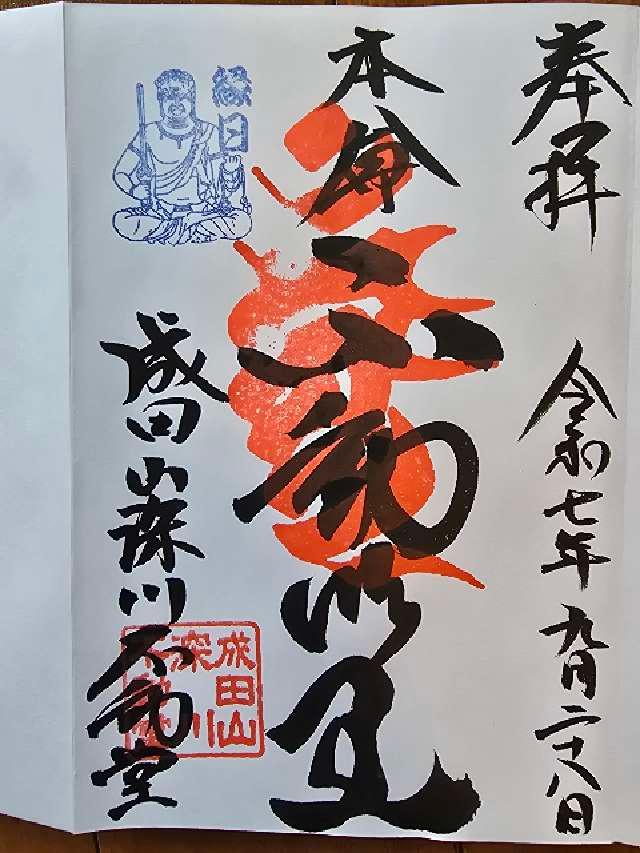 奉拝　令和七年九月二十八日
本尊不動明王
縁日
成田山深川不動堂
成田山
深川
不動堂